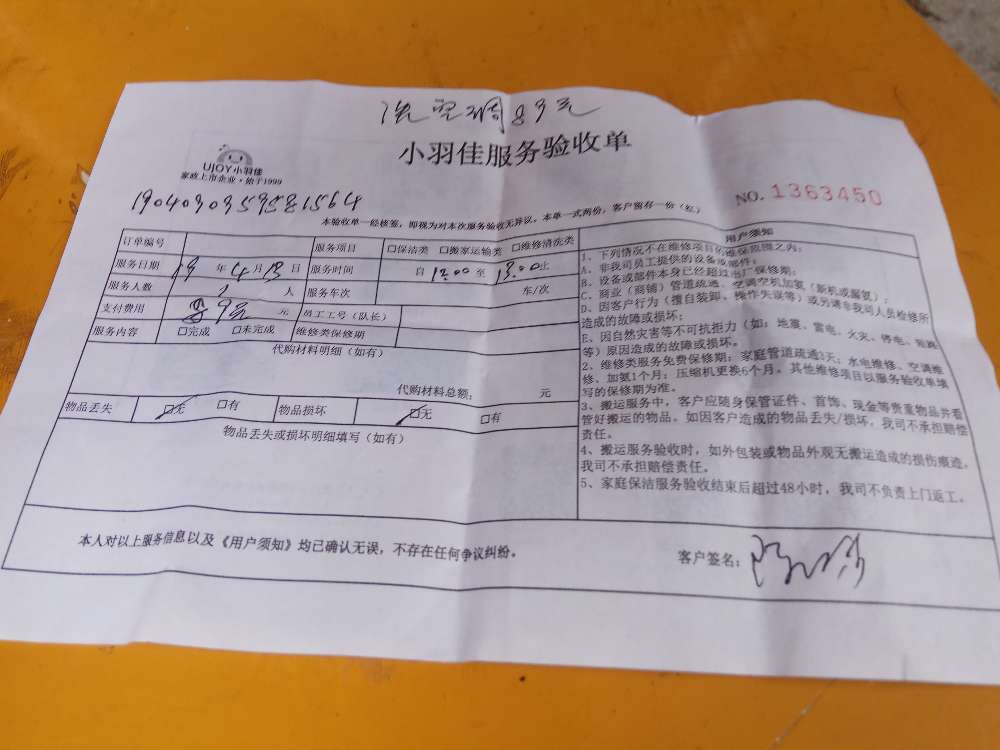 洗空调89元
小羽佳服务验收单
UJOY小羽佳
家政上市企业·始于1999
NO. 1363450
本验收单一经核签，即视为对本次服务验收无异议，本单一式两份，客户留存一份（红）
订单编号 服务项目 □保洁类 □搬家运输类 □维修清洗类
服务日期 19年4月13日 服务时间 自12:00至13:00止
服务人数 人 服务车次 车/次
支付费用 9元 元 员工工号（队长）
服务内容 □完成 □未完成 维修类保修期
代购材料明细（如有）
代购材料总额： 元
物品丢失 □无 □有 物品损坏 □无 □有
物品丢失或损坏明细填写（如有）
用户须知
1、下列情况不在维修项目的维保范围之内：
A、非我司员工提供的设备或部件；
B、设备或部件本身已经超过出厂保修期；
C、商业（商铺）管道疏通、空调空机加氨（新机或漏氨）；
D、因客户行为（擅自装卸、操作失误等）或另请非我司人员检修所
造成的故障或损坏；
E、因自然灾害等不可抗拒力（如：地震、雷电、火灾、停电、短路
等）原因造成的故障或损坏。
2、维修类服务免费保修期：家庭管道疏通3天；水电维修、空调维
修、加氨1个月；压缩机更换6个月。其他维修项目以服务验收单填
写的保修期为准。
3、搬运服务中，客户应随身保管证件、首饰、现金等贵重物品并看
管好搬运的物品。如因客户造成的物品丢失/损坏，我司不承担赔偿
责任。
4、搬运服务验收时，如外包装或物品外观无搬运造成的损伤痕迹，
我司不承担赔偿责任。
5、家庭保洁服务验收结束后超过48小时，我司不负责上门返工。
本人对以上服务信息以及《用户须知》均已确认无误，不存在任何争议纠纷。
客户签名：